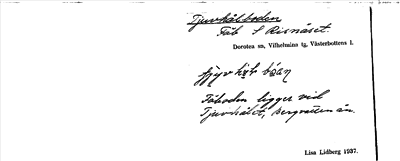 Tjuvhålboden
Fäb. S Risnäset.
Dorotea sn, Vilhelmina tg, Västerbottens l.
Fäboden ligger vid
Tjuvhålet, Bergvattenån.
Lisa Lidberg 1937.